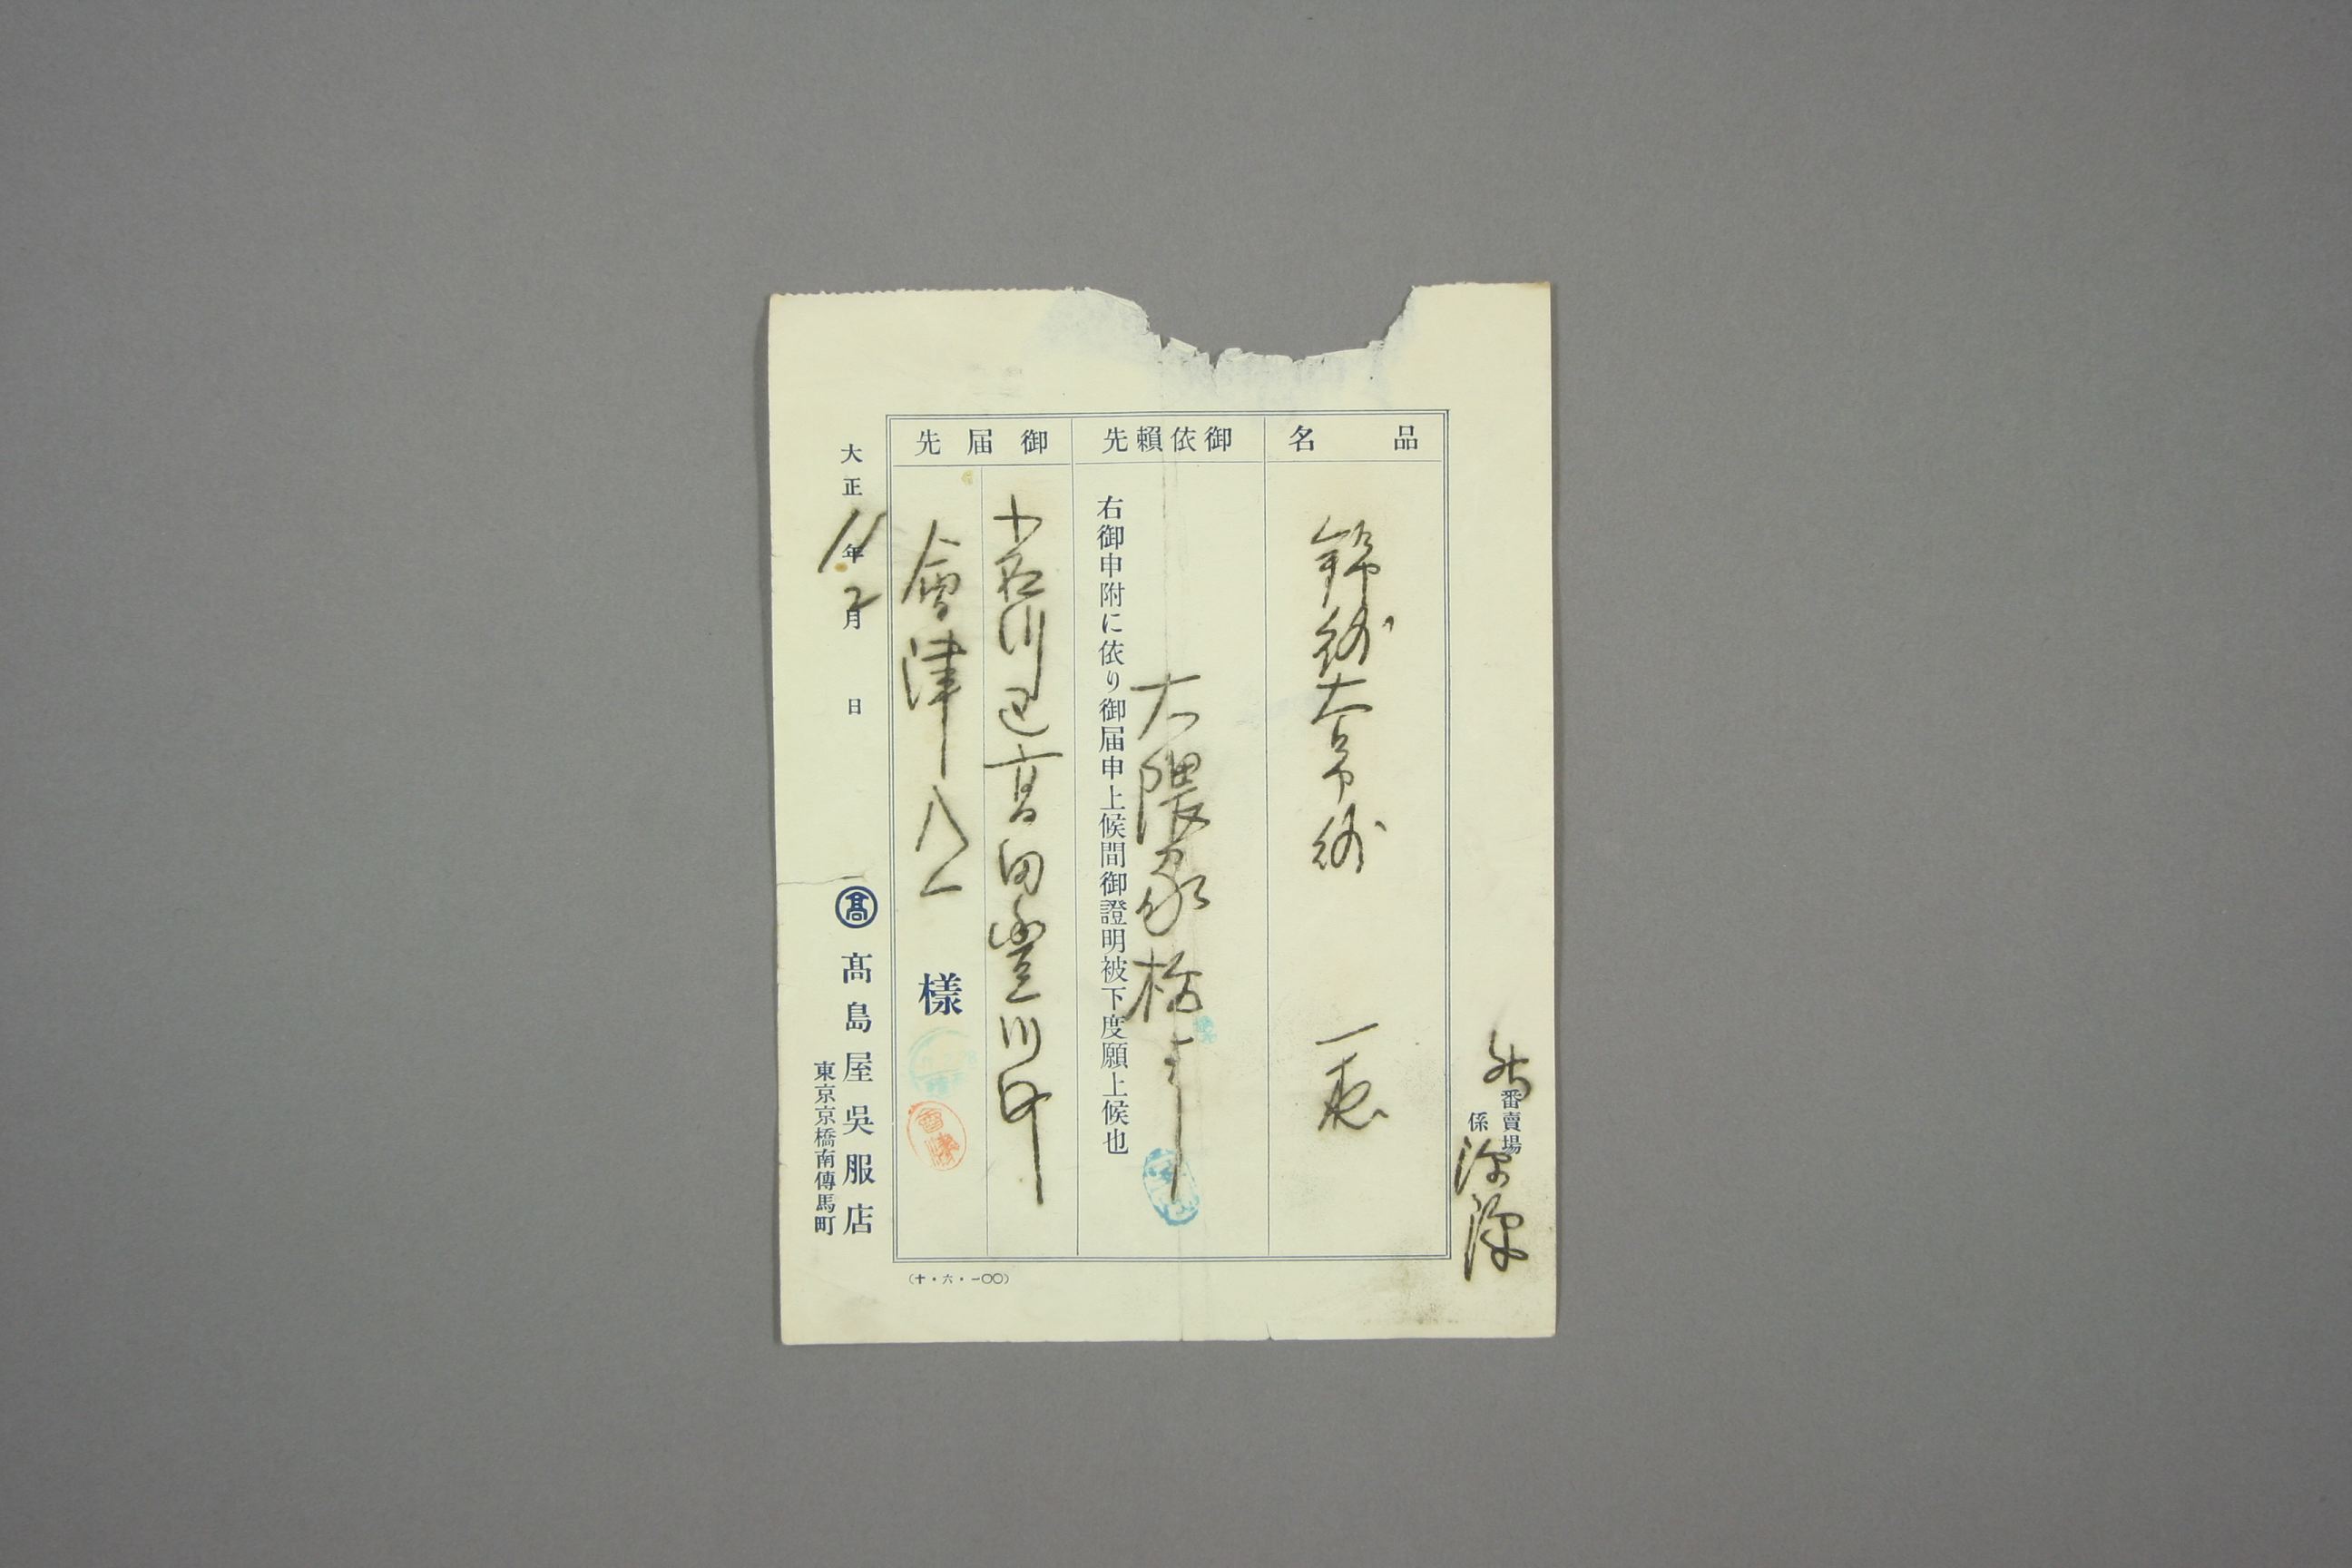 番賣場
係
品名
錦紗大帛紗 一
御依賴先
大隈家
右御申附に依り御届申上候間御證明被下度願上候也
御届先
小石川區高田豊川町
會津八一 樣
會津
大正11年2月 日
髙 髙島屋吳服店
東京京橋南傳馬町
(十・六・一〇〇)